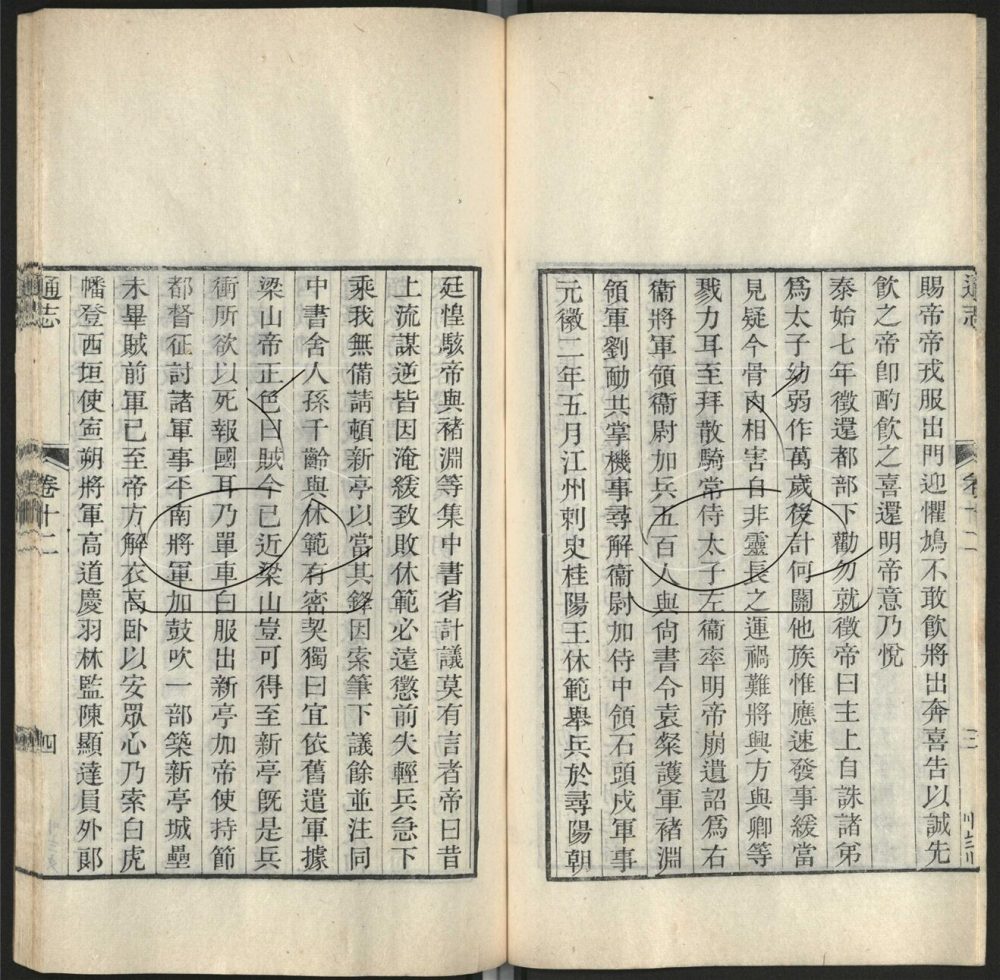 賜帝帝戎服出門迎懼鴆不敢飲將出奔喜告以誠先
飲之帝卽酌飲之喜還明帝意乃悅
泰始七年徵還都部下勸勿就徵帝曰主上自誅諸弟
爲太子幼弱作萬歲後計何關他族惟應速發事緩當
見疑今骨肉相害自非靈長之運禍難將興方與卿等
戮力耳至拜散騎常侍太子左衞率明帝崩遺詔爲右
衞將軍領衞尉加兵五百人與尙書令袁粲護軍褚淵
領軍劉勔共掌機事尋解衞尉加侍中領石頭戍軍事
元徽二年五月江州刺史桂陽王休範舉兵於尋陽朝
廷惶駭帝與褚淵等集中書省計議莫有言者帝曰昔
上流謀逆皆因淹緩致敗休範必遠懲前失輕兵急下
乘我無備請頓新亭以當其鋒因索筆下議餘並注同
中書舍人孫千齡與休範有密契獨曰宜依舊遣軍據
梁山帝正色曰賊今已近梁山豈可得至新亭旣是兵
衝所欲以死報國耳乃單車白服出新亭加帝使持節
都督征討諸軍事平南將軍加鼓吹一部築新亭城壘
未畢賊前軍已至帝方解衣高卧以安眾心乃索白虎
幡登西垣使甯朔將軍高道慶羽林監陳顯達員外郞
通志
卷十二
四